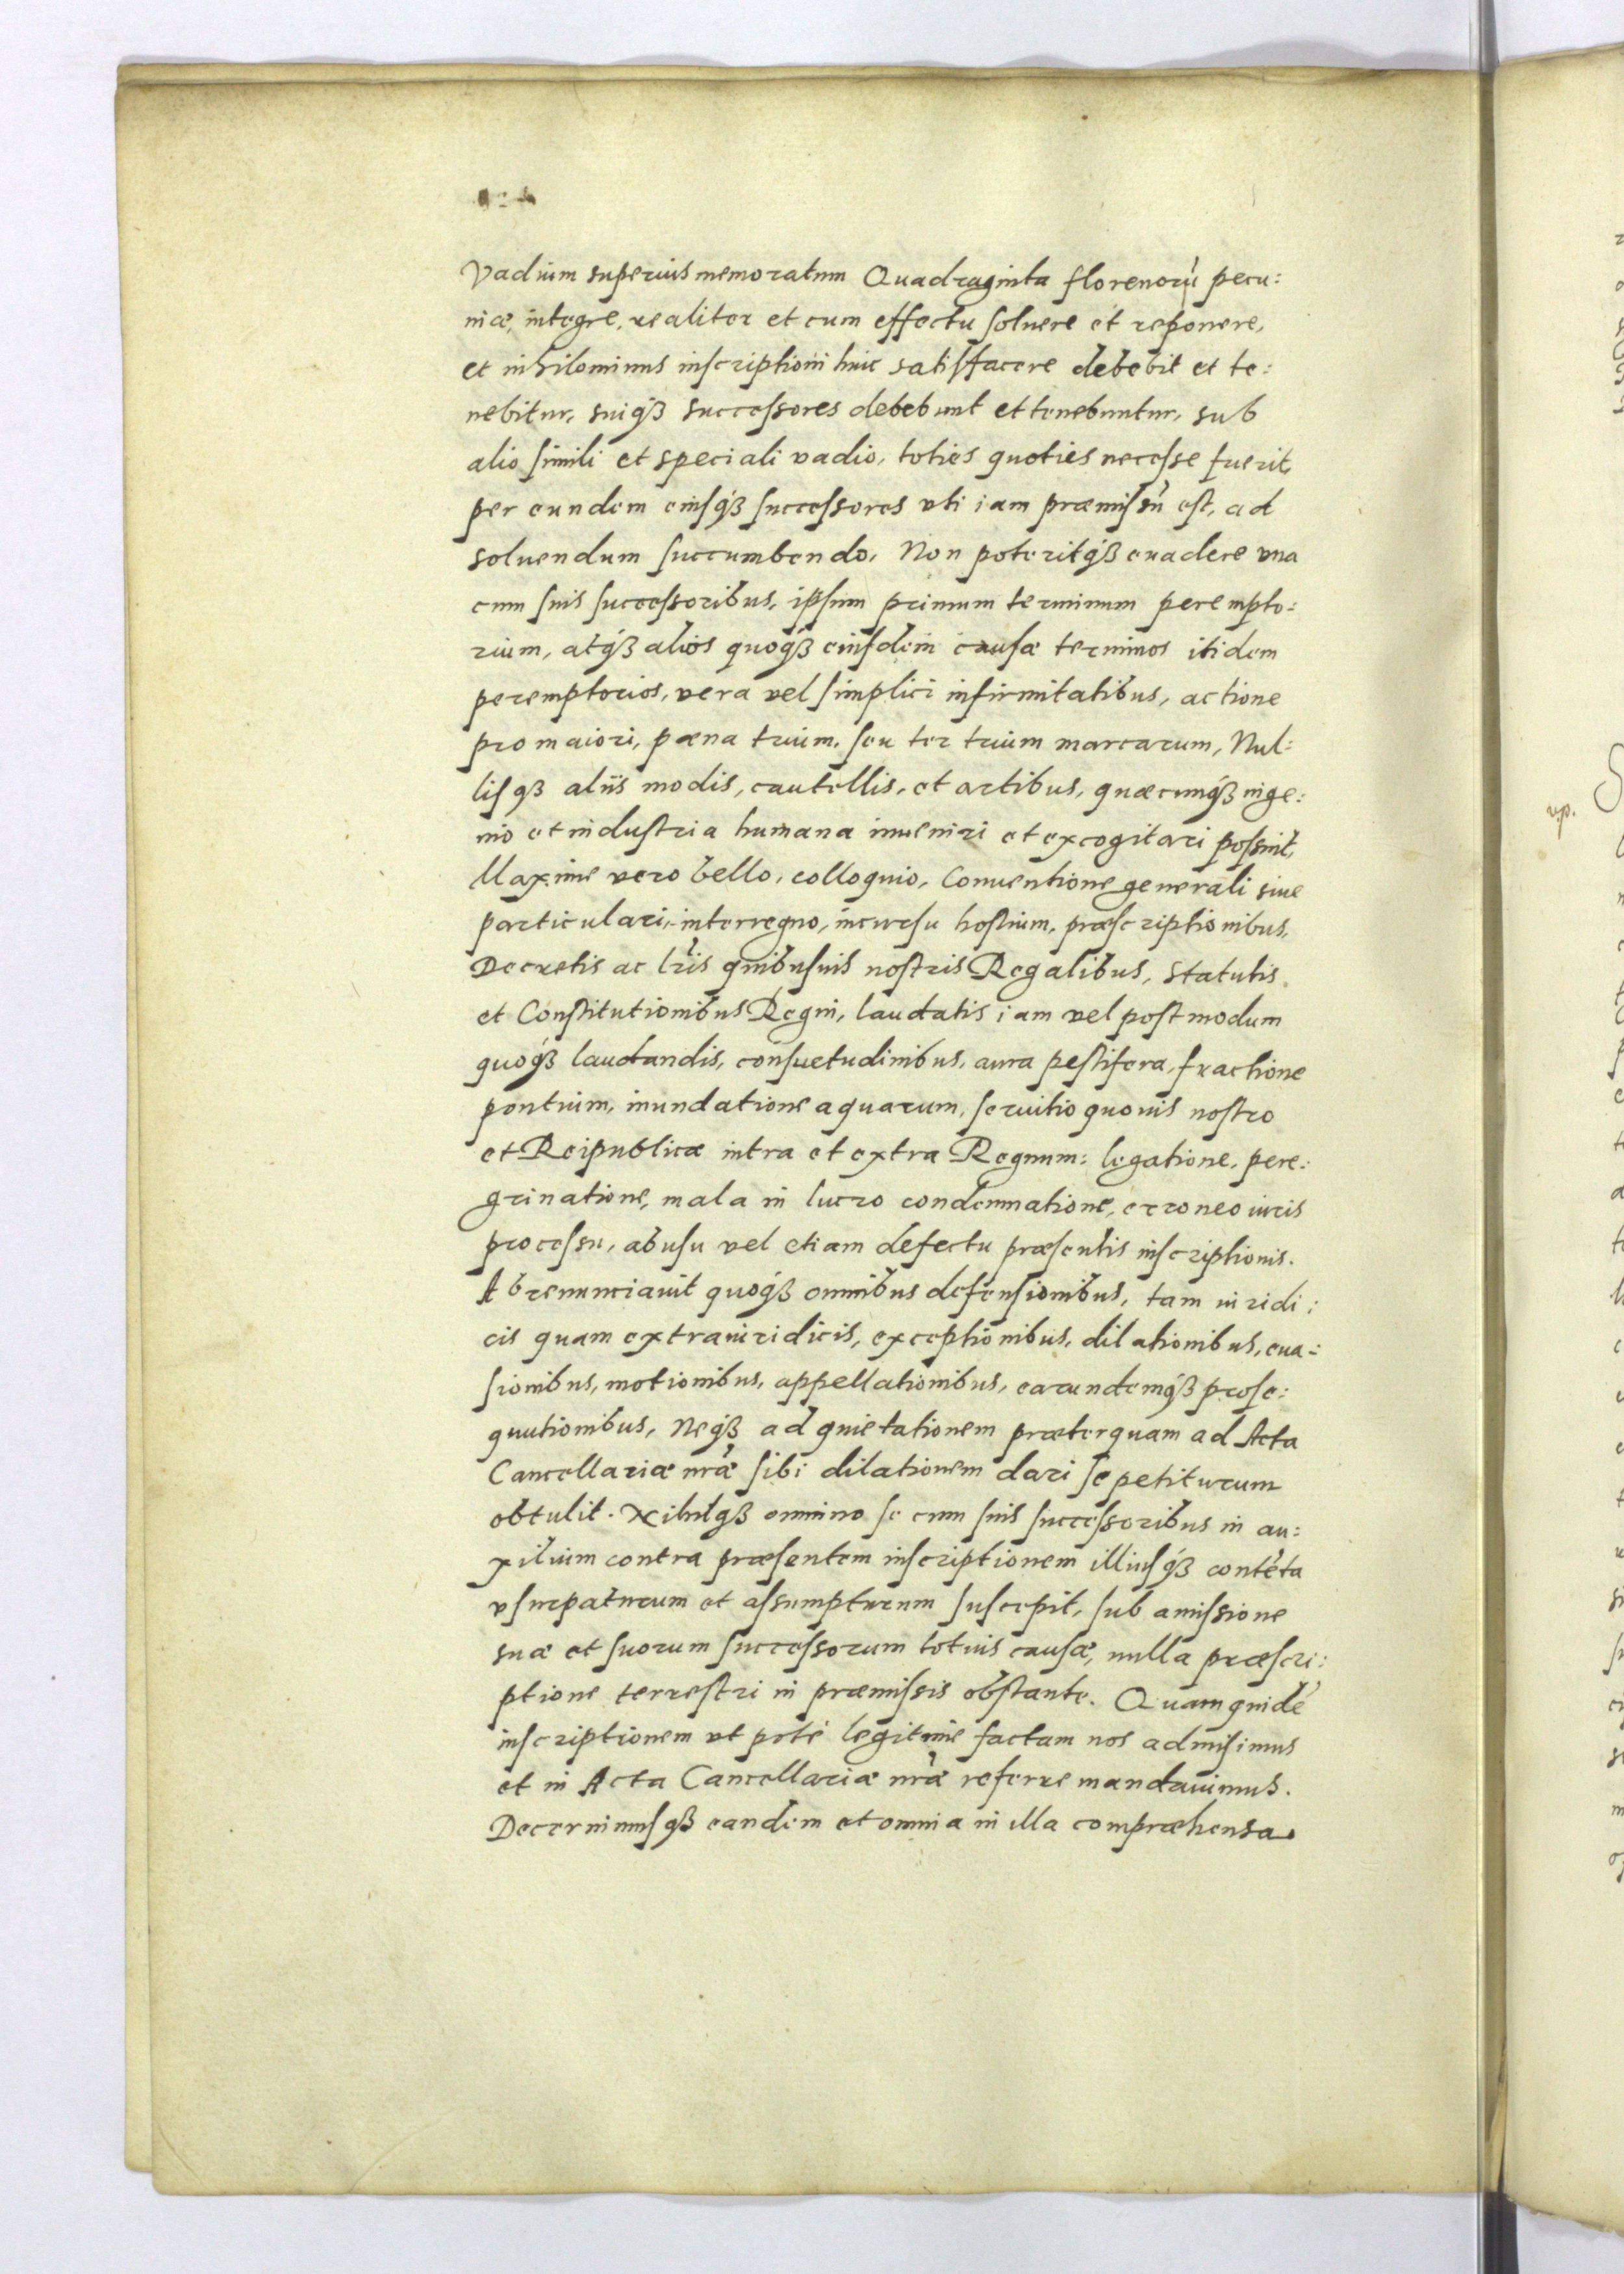 Vadium superius memoratum Quadraginta florenorũ pecu:
niæ, integre, realiter et cum effectu soluere et reponere,
et nihilominus inscriptioni huic satisfacere debebit et te:
nebitur, suiq́ꝫ successores debebunt et tenebuntur, sub
alio simili et speciali vadio, toties quoties necesse fuerit,
per eundem eiusq́ꝫ successores vti iam præmissũ est, ad
soluendum succumbendo. Non poteritq́ꝫ euadere vna
cum suis successoribus, ipsum primum terminum perempto:
rium, atq́ꝫ alios quoq́ꝫ eiusdem causæ terminos itidem
peremptorios, vera vel simplici infirmitatibus, actione
pro maiori, pœna trium, seu ter trium marcarum, Nul:
lisqꝫ aliis modis, cautellis, et artibus, quæcumq́ꝫ inge:
nio et industria humana inueniri et excogitari possint,
Maxime vero bello, colloquio, Conuentione generali siue
particulari, interregno, incursu hostium, præscriptionibus,
Decretis ac lr̃is quibusuis nostris Regalibus, statutis
et Constitutionibus Regni, laudatis iam vel postmodum
quoq́ꝫ laudandis, consuetudinibus, aura pestifera, fractione
pontium, inundatione aquarum, seruitio quouis nostro
et Reipublicæ intra et extra Regnum: legatione, pere:
grinatione, mala in lucro condemnatione, erroneo iuris
processu, abusu vel etiam defectu præsentis inscriptionis.
Abrenunciauit quoq́ꝫ omnibus defensionibus, tam iuridi:
cis quam extraiuridicis, exceptionibus, dilationibus, eua:
sionibus, motionibus, appellationibus, earundemq́ꝫ prose:
quutionibus, Neq́ꝫ ad quietationem præterquam ad Acta
Cancellariæ nr̃æ sibi dilationem dari se petiturum
obtulit. Nihilqꝫ omnino se cum suis successoribus in au:
xilium contra præsentem inscriptionem illiusq́ꝫ contẽta
vsurpaturum et assumpturum suscepit, sub amissione
suæ et suorum successorum totius causæ, nulla præscri:
ptione terrestri in præmissis obstante. Quam quidẽ
inscriptionem vt pote legitime factam nos admisimus
et in Acta Cancellariæ nr̃æ referre mandauimus.
Decernimusqꝫ eandem et omnia in illa compræhensa
vp.